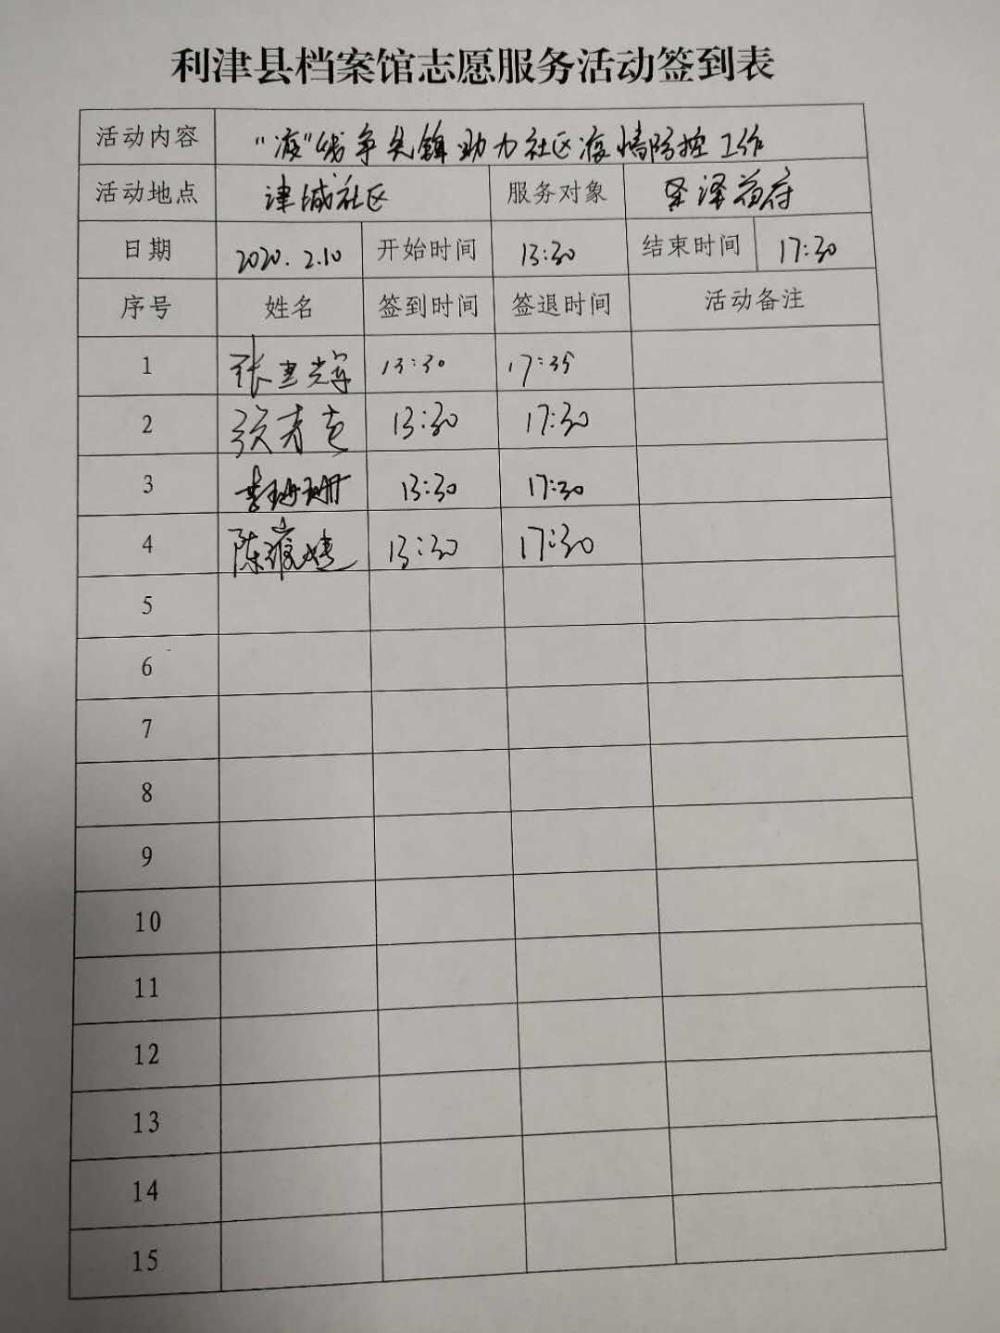 利津县档案馆志愿服务活动签到表
活动内容 "疫"线争先锋 助力社区疫情防控工作
活动地点 津城社区 服务对象 圣泽首府
日期 2020.2.10 开始时间 13:30 结束时间 17:30
序号 姓名 签到时间 签退时间 活动备注
1 张 13:30 17:35
2 张 13:30 17:30
3 李珊珊 13:30 17:30
4 陈 13:30 17:30
5
6
7
8
9
10
11
12
13
14
15